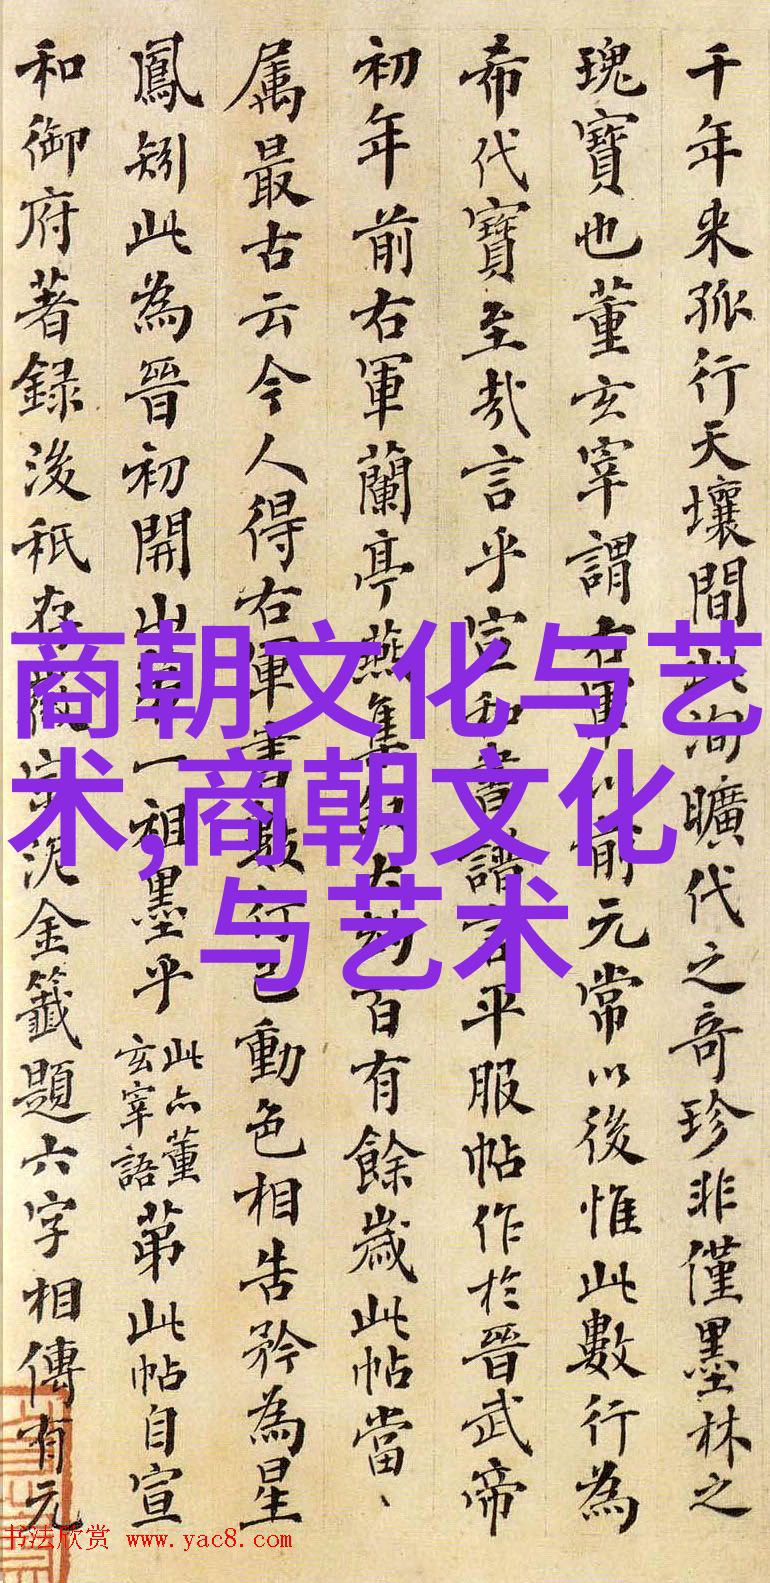 千年来孤行天壤間此洵曠代之奇珍非僅墨林之
瑰寶也董玄宰謂右軍以前元常以後惟此數行為
希代寶至哉言乎宣和書譜言平服帖作於晉武帝
初年前右軍蘭亭燕集叙大約百有餘歲此帖當、
属最古云今人得右軍書數行已動色相告矜為星
鳳矧此為晉初開山第一祖墨乎此亦董玄宰語苐此帖自宣
和御府著録後秪存徽宗泥金籤題六字相傳有元
商朝文化与艺
术,商朝文化
与艺术
书法欣赏 www.yac8.com